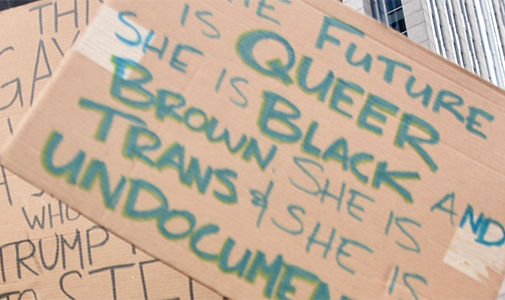 THI
GAY
WHO
TRUMP
TO STE
HE FUTURE
IS QUEER
SHE IS BLACK AND
BROWN. SHE IS
TRANS & SHE IS
UNDOCUMEN